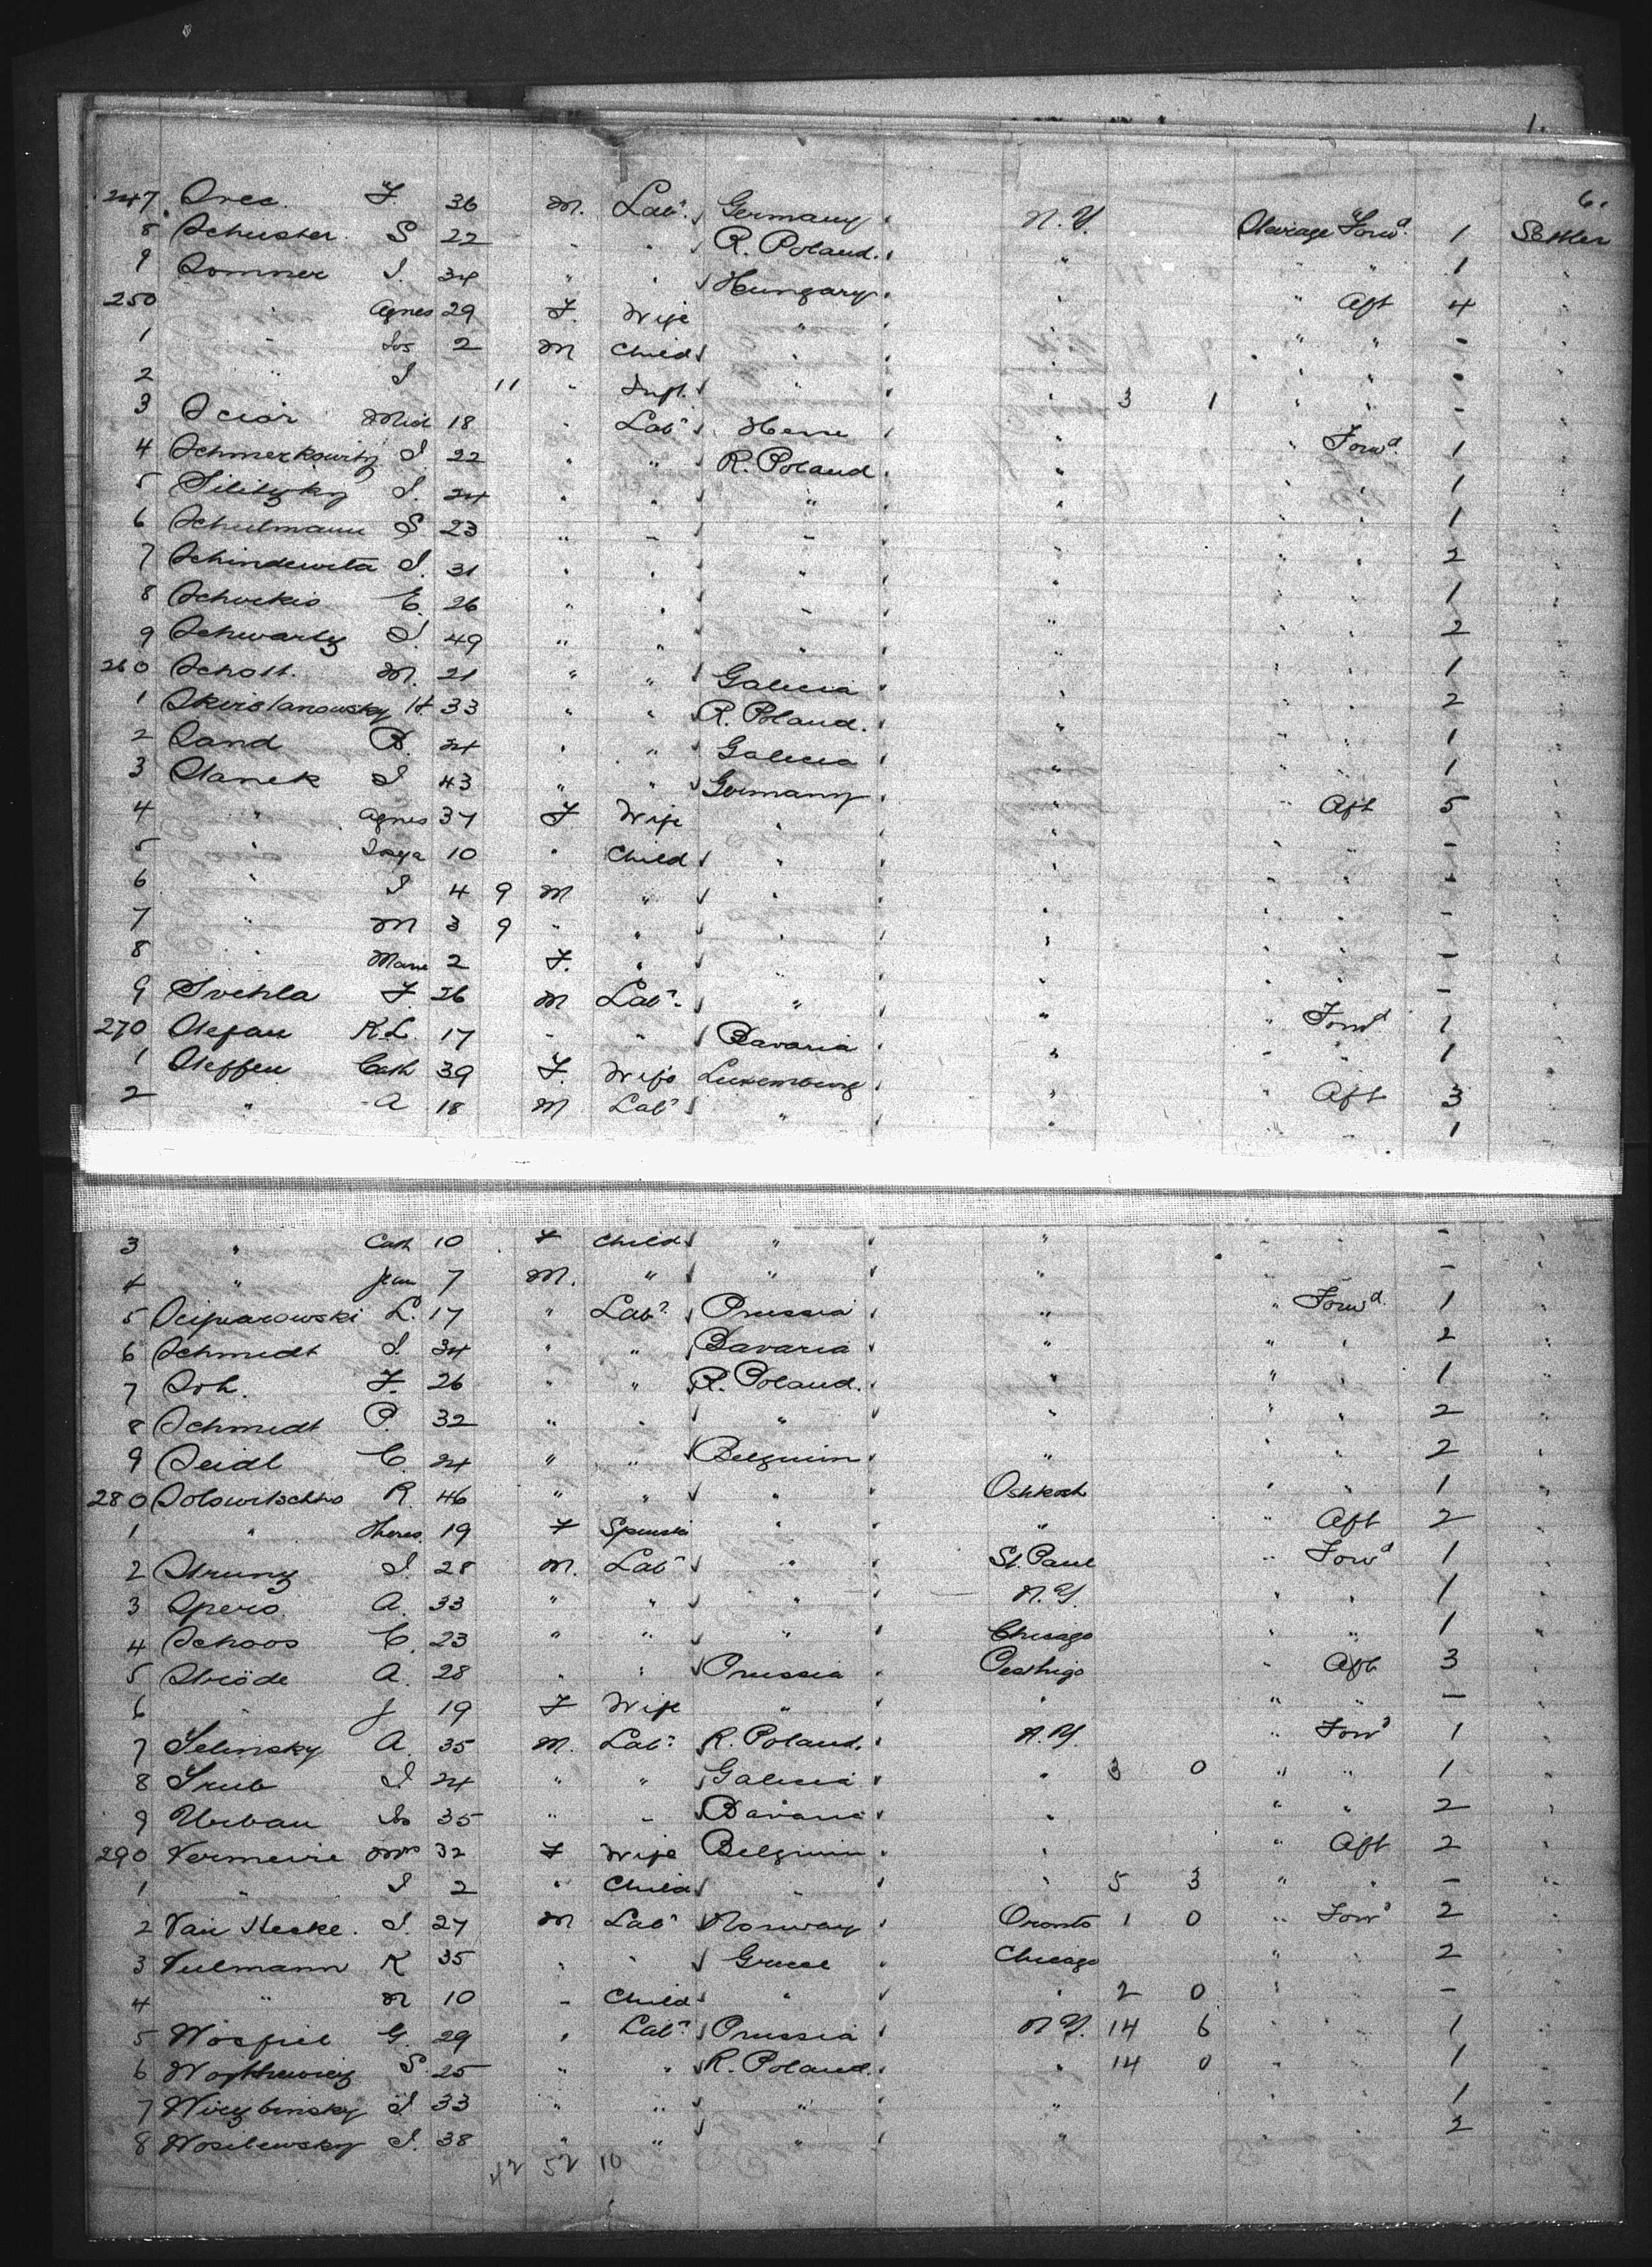 1.
6.
247 Srec. F. 36 M. Labr. Germany N.Y. Steerage Forwd. 1 Settler
8 Schuster S 22 " " R. Poland. " " " 1 "
9 Sommer J. 34 " " Hungary " " Aft 4 "
250 " Agnes 29 F. Wife " " " " - "
1 " Jos 2 M Child " " " " - "
2 " J 11 " Inft. " " 3 1 " " - "
3 Sciar Mid 18 " Labr " " Forwd. 1 "
4 Schmerkowitz J. 22 " " R. Poland " " " 1 "
5 J. 24 " " " " " " 1 "
6 Schulmann S. 23 " " " " " " 2 "
7 Schindewita J. 31 " " " " " " 1 "
8 Schockis E. 26 " " " " " " 2 "
9 Schwartz J. 49 " " " " " " 1 "
260 Schott. M. 21 " " Galicia " " " 2 "
1 H. 33 " " R. Poland. " " " 1 "
2 Sand B. 24 " " Galicia " " " 1 "
3 Stanek J 43 " " Germany " " Aft 5 "
4 " Agnes 37 F. Wife " " " " - "
5 " 10 " Child " " " " - "
6 " J 4 9 M " " " " " - "
7 " M 3 9 " " " " " " - "
8 " Marie 2 F. " " " " " - "
9 Svehla F. 26 M Labr. " " " Forwd 1 "
270 Stefan K.L. 17 " " Bavaria " " " 1 "
1 Steffen Cath 39 F. Wife Luxemburg " " Aft 3 "
2 " A 18 M Labr " " " " 1 "
3 " Cath 10 F Child " " " " - "
4 " Jean 7 M. " " " " " - "
5 L. 17 " Labr. Prussia " " Forwd. 1 "
6 Schmidt J. 34 " " Bavaria " " " 2 "
7 F. 26 " " R. Poland. " " " 1 "
8 Schmidt P. 32 " " " " " " 2 "
9 Seidl C. 24 " " Belgium " " " 2 "
280 R. 46 " " " Oshkosh " " 1 "
1 " Theres 19 F " " " Aft 2 "
2 Strunz J. 28 M. Labr " St. Paul " Forwd 1 "
3 Spero A. 33 " " " N.Y. " " 1 "
4 Schoos C. 23 " " " Chicago " " 1 "
5 Ströde A. 28 " " Prussia " Aft 3 "
6 " J 19 F Wife " " " " - "
7 Selinsky A. 35 M. Labr. R. Poland. N.Y. " Forwd 1 "
8 J 24 " " Galicia " 3 0 " " 1 "
9 Urban Jos 35 " " Bavaria " " " 2 "
290 Vermeire Mrs 32 F Wife Belgium " " Aft 2 "
1 " J 2 " Child " " 5 3 " " - "
2 Van Hecke. J. 27 M Labr Norway 1 0 " Forwd 2 "
3 K 35 " " Chicago " " 2 "
4 " N 10 " Child " " 2 0 " " - "
5 G. 29 " Labr. Prussia N.Y. 14 6 " " 1 "
6 S. 25 " " R. Poland. " 14 0 " " 1 "
7 J. 33 " " " " " " 1 "
8 Wosilewsky J. 38 " " " " " " 2 "
42 52 10